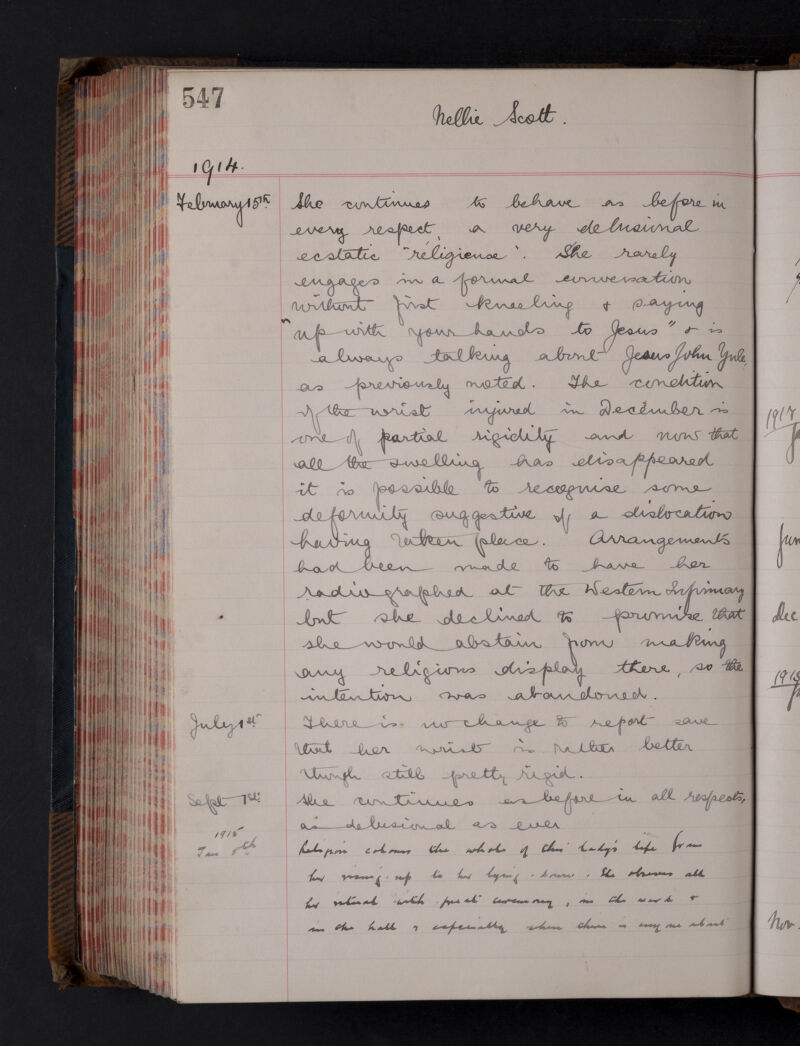 547
Nellie Scott.
1914.
February 15th She continues to behave as before in
every respect, a very delusional
ecstatic "réligieuse". She rarely
engages in a formal conversation
without first kneeling & saying
"up with your hands to Jesus" & is
always talking about Jesus John Yule
as previously noted. The condition
of the wrist injured in December is
one of partial rigidity and now that
all the swelling has disappeared
it is possible to recognise some
deformity suggestive of a dislocation
having taken place. Arrangements
had been made to have her
radiographed at the Western Infirmary
but she declined to promise that
she would abstain from making
any religious display there, so the
intention was abandoned.
July 1st There is no change to report save
that her wrist is rather better
though still pretty rigid.
Sept 1st: She continues as before in all respects,
as delusional as ever
1915
Jan Religion colours the whole of this lady's life from
her rising up to her lying down. She observes all
her ritual with great ceremony, in the ward &
in the hall & especially when there is any one about
1917
Jun
Dec
1918
Nov.